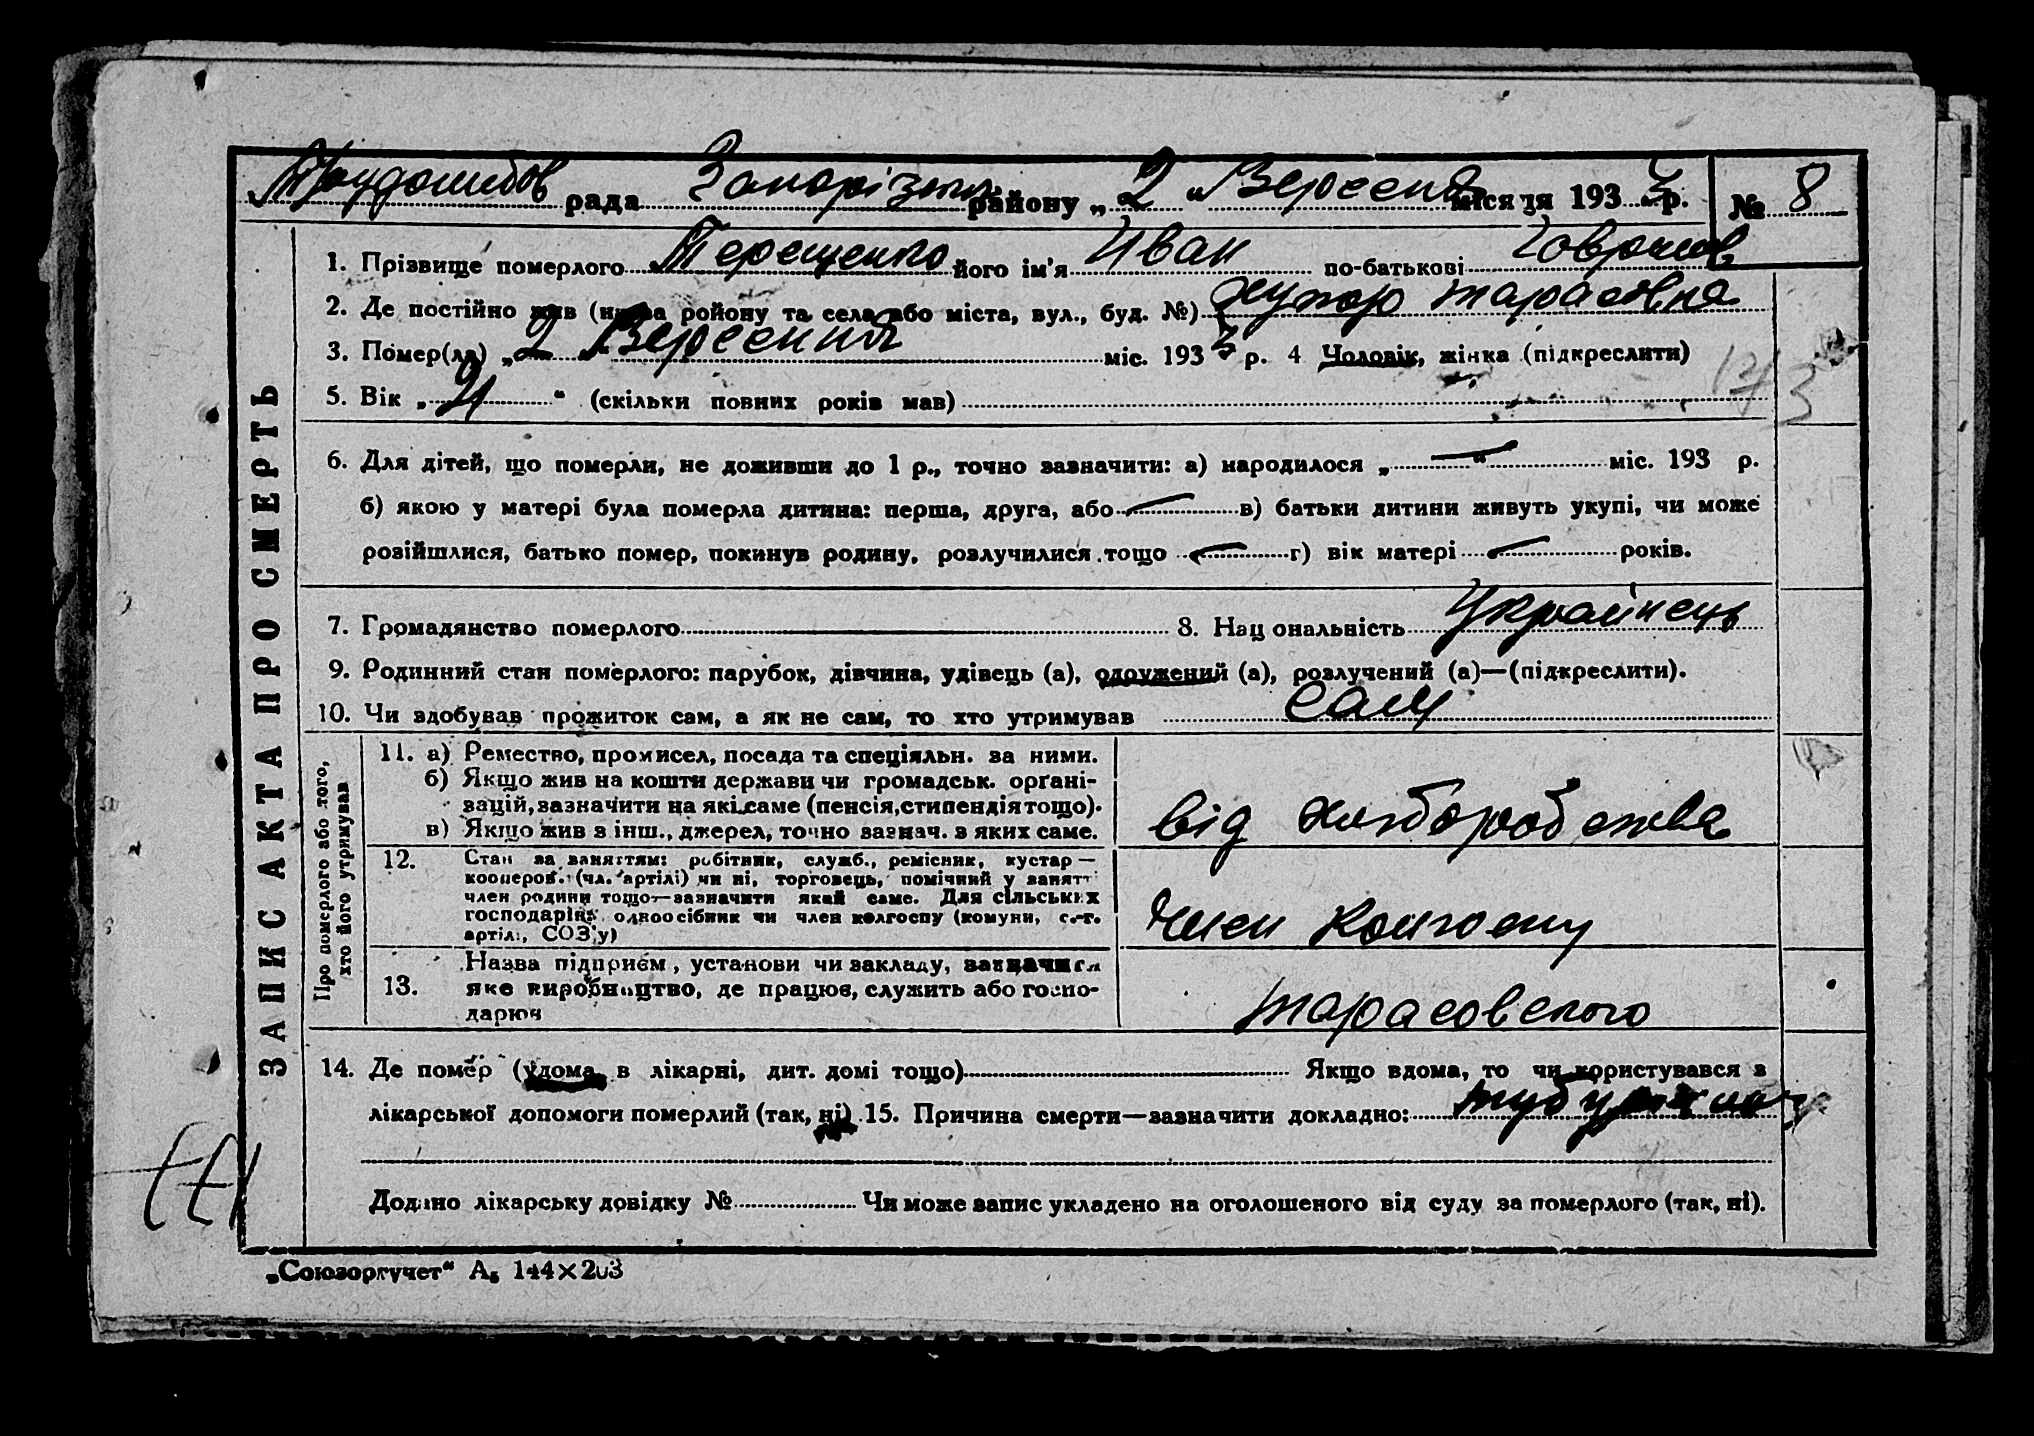 Трудолюбов рада Запорізьк району „ 2 " Вересня місяця 1933 р. № 8
1. Прізвище померлого Терещенко його ім'я Иван по-батькові
2. Де постійно жив (назва району та села або міста, вул., буд. №) хутор тарасовка
3. Помер(ла) „ 2 " Вересння міс. 1933 р. 4 Чоловік, жінка (підкреслити)
5. Вік „ " (скільки повних років мав)
173
6. Для дітей, що померли, не доживши до 1 р., точно зазначити: а) народилося „ — " міс. 193 р.
б) якою у матері була померла дитина: перша, друга, або — в) батьки дитини живуть укупі, чи може
розійшлися, батько помер, покинув родину, розлучилися тощо — г) вік матері — років.
7. Громадянство померлого 8. Нац ональність Українець
9. Родинний стан померлого: парубок, дівчина, удівець (а), одружений (а), розлучений (а)—(підкреслити).
10. Чи здобував прожиток сам, а як не сам, то хто утримував сам
ЗАПИС АКТА ПРО СМЕРТЬ
Про померлого або того,
хто його утримував
11. а) Ремество, промисел, посада та спеціяльн. за ними.
б) Якщо жив на кошти держави чи громадськ. органі-
зацій, зазначити на які саме (пенсія, стипендія тощо).
в) Якщо жив з інш., джерел, точно зазнач. з яких саме.
від хліборобства
12. Стан за заняттям: робітник, служб., ремісник, кустар —
кооперов. (чл. артілі) чи ні, торговець, помічний у занятт
член родини тощо—зазначити який саме. Для сільських
господарів: одноосібник чи член колгоспу (комуни, с.-г.
артілі, СОЗ'у)
член колгоспу
13. Назва підприєм, установи чи закладу, зазначися
яке виробництво, де працює, служить або госпо-
дарює
тарасовского
14. Де помер (удома, в лікарні, дит. домі тощо) Якщо вдома, то чи користувався з
лікарської допомоги померлий (так, ні). 15. Причина смерти—зазначити докладно:
Додано лікарську довідку № Чи може запис укладено на оголошеного від суду за померлого (так, ні).
„Союзоргучет" А₅ 144×203